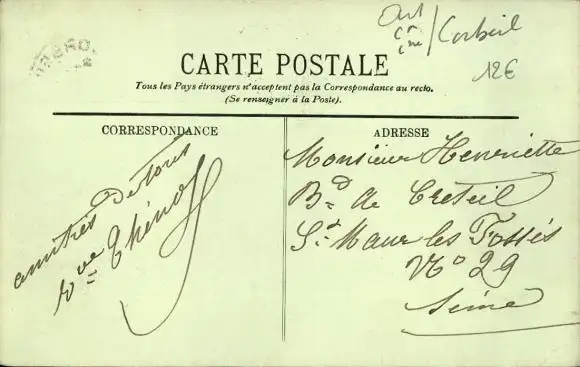 Corbeil
12€
CARTE POSTALE
Tous les Pays étrangers n'acceptent pas la Correspondance au recto.
(Se renseigner à la Poste).
CORRESPONDANCE
amitiés De tous
Vve Thénot
ADRESSE
Monsieur Henriette
Bd de Creteil
St Maur les Fossés
No 29
Seine